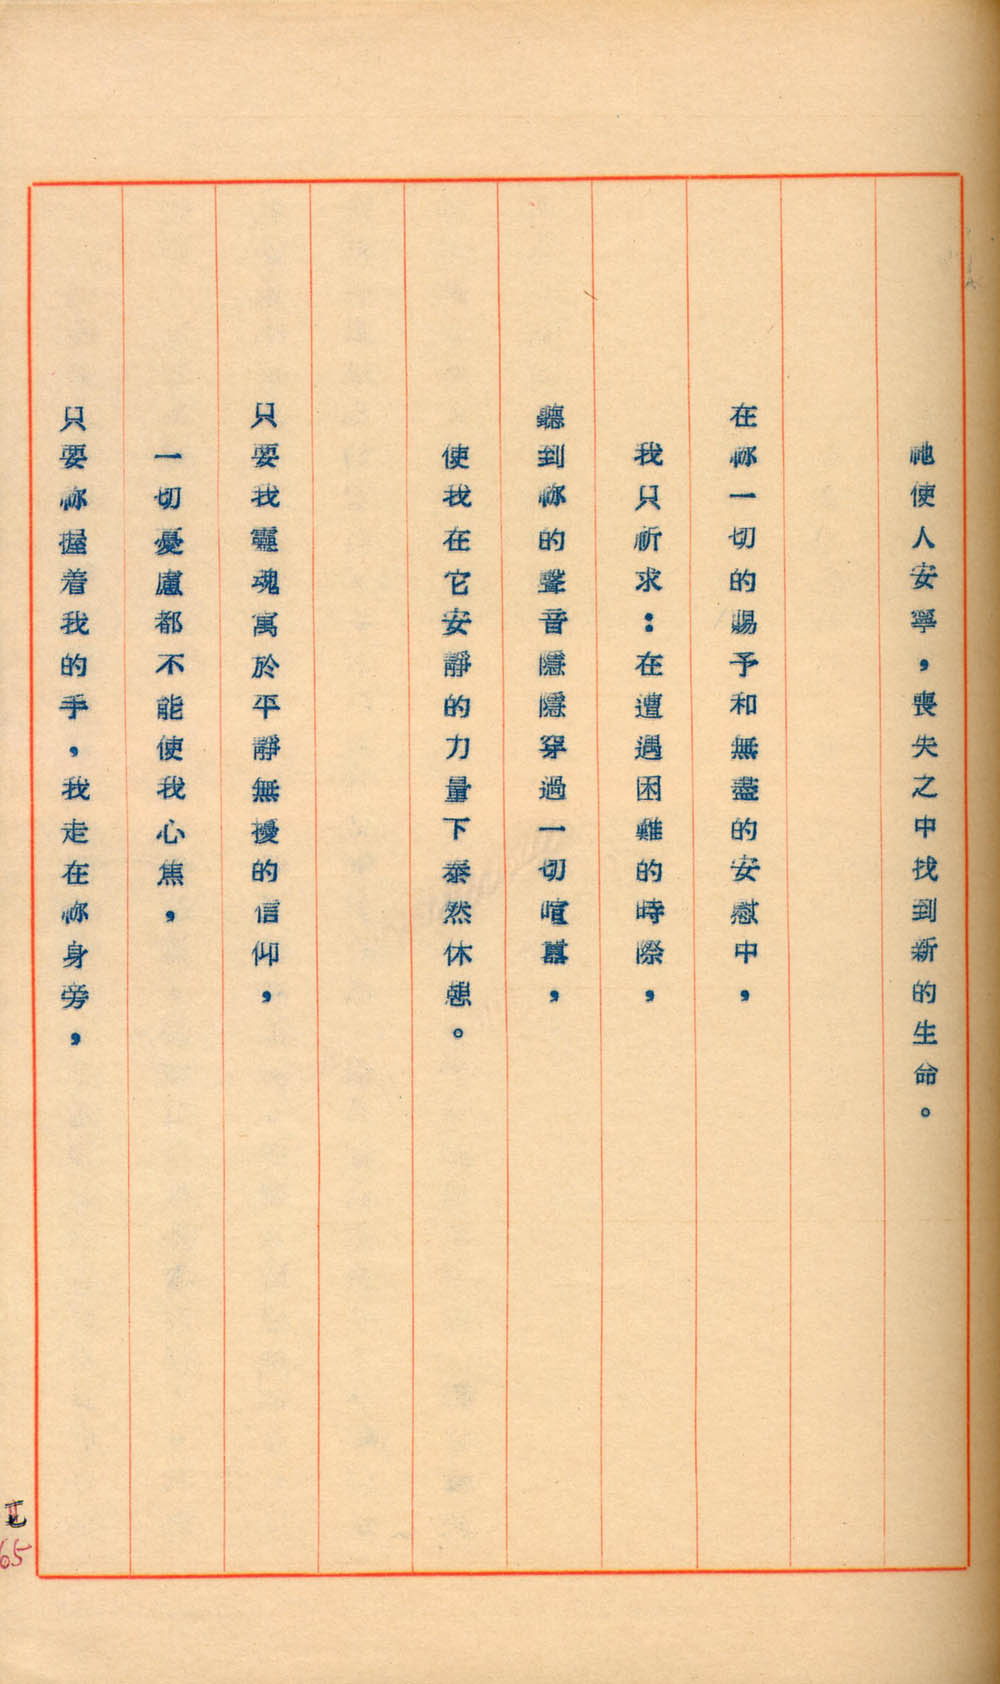 祂使人安寧，喪失之中找到新的生命。
在祢一切的賜予和無盡的安慰中，
我只祈求：在遭遇困難的時際，
聽到祢的聲音隱隱穿過一切喧囂，
使我在它安靜的力量下泰然休憩。
只要我靈魂寓於平靜無擾的信仰，
一切憂慮都不能使我心焦，
只要祢握着我的手，我走在祢身旁，
II
65